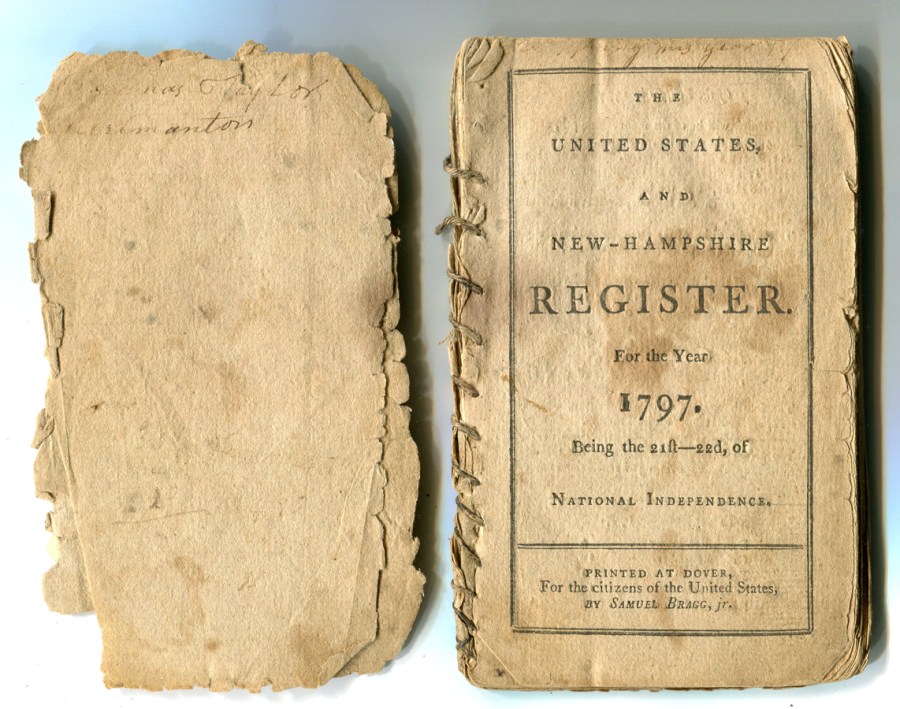 Taylor
THE
UNITED STATES,
AND
NEW-HAMPSHIRE
REGISTER.
For the Year
1797.
Being the 21ſt—22d, of
NATIONAL INDEPENDENCE.
PRINTED AT DOVER,
For the citizens of the United States,
BY SAMUEL BRAGG, jr.